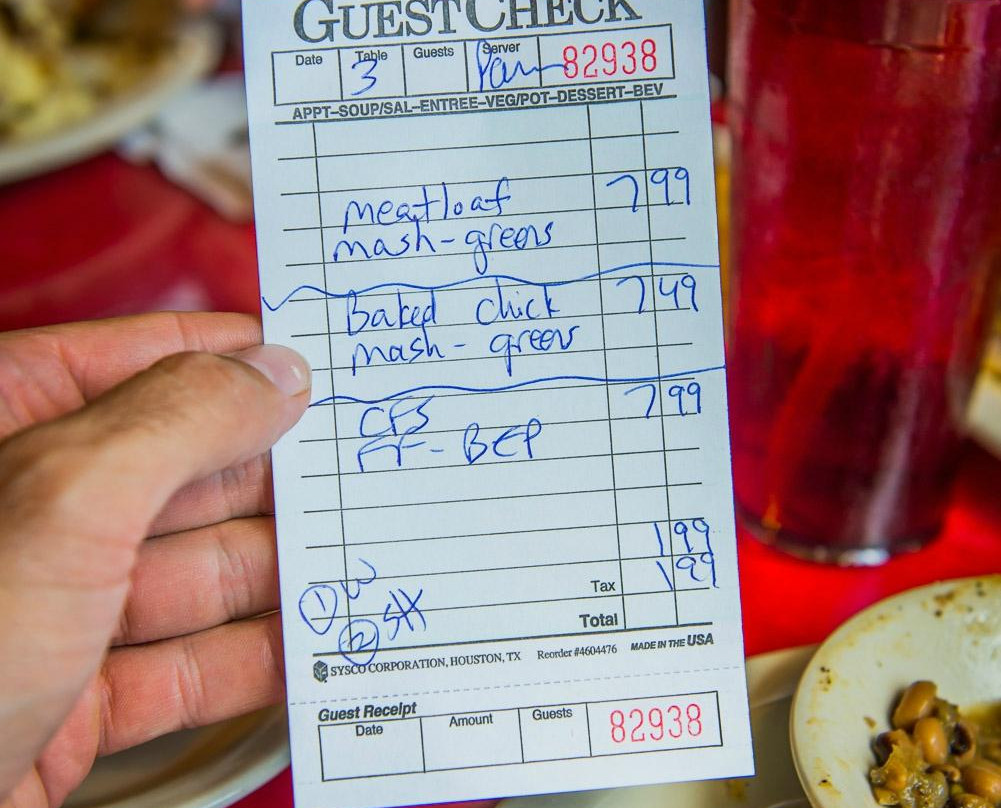 GUEST CHECK
Date Table Guests Server 82938
3 Pam
APPT-SOUP/SAL-ENTREE-VEG/POT-DESSERT-BEV
meatloaf 7 99
mash-greens
Baked chick 7 49
mash-greens
CFS 7 99
FF-BEP
1 99
1 99
① W
Tax
②
Total
SYSCO CORPORATION, HOUSTON, TX Reorder #4604476 MADE IN THE USA
Guest Receipt
Date Amount Guests 82938